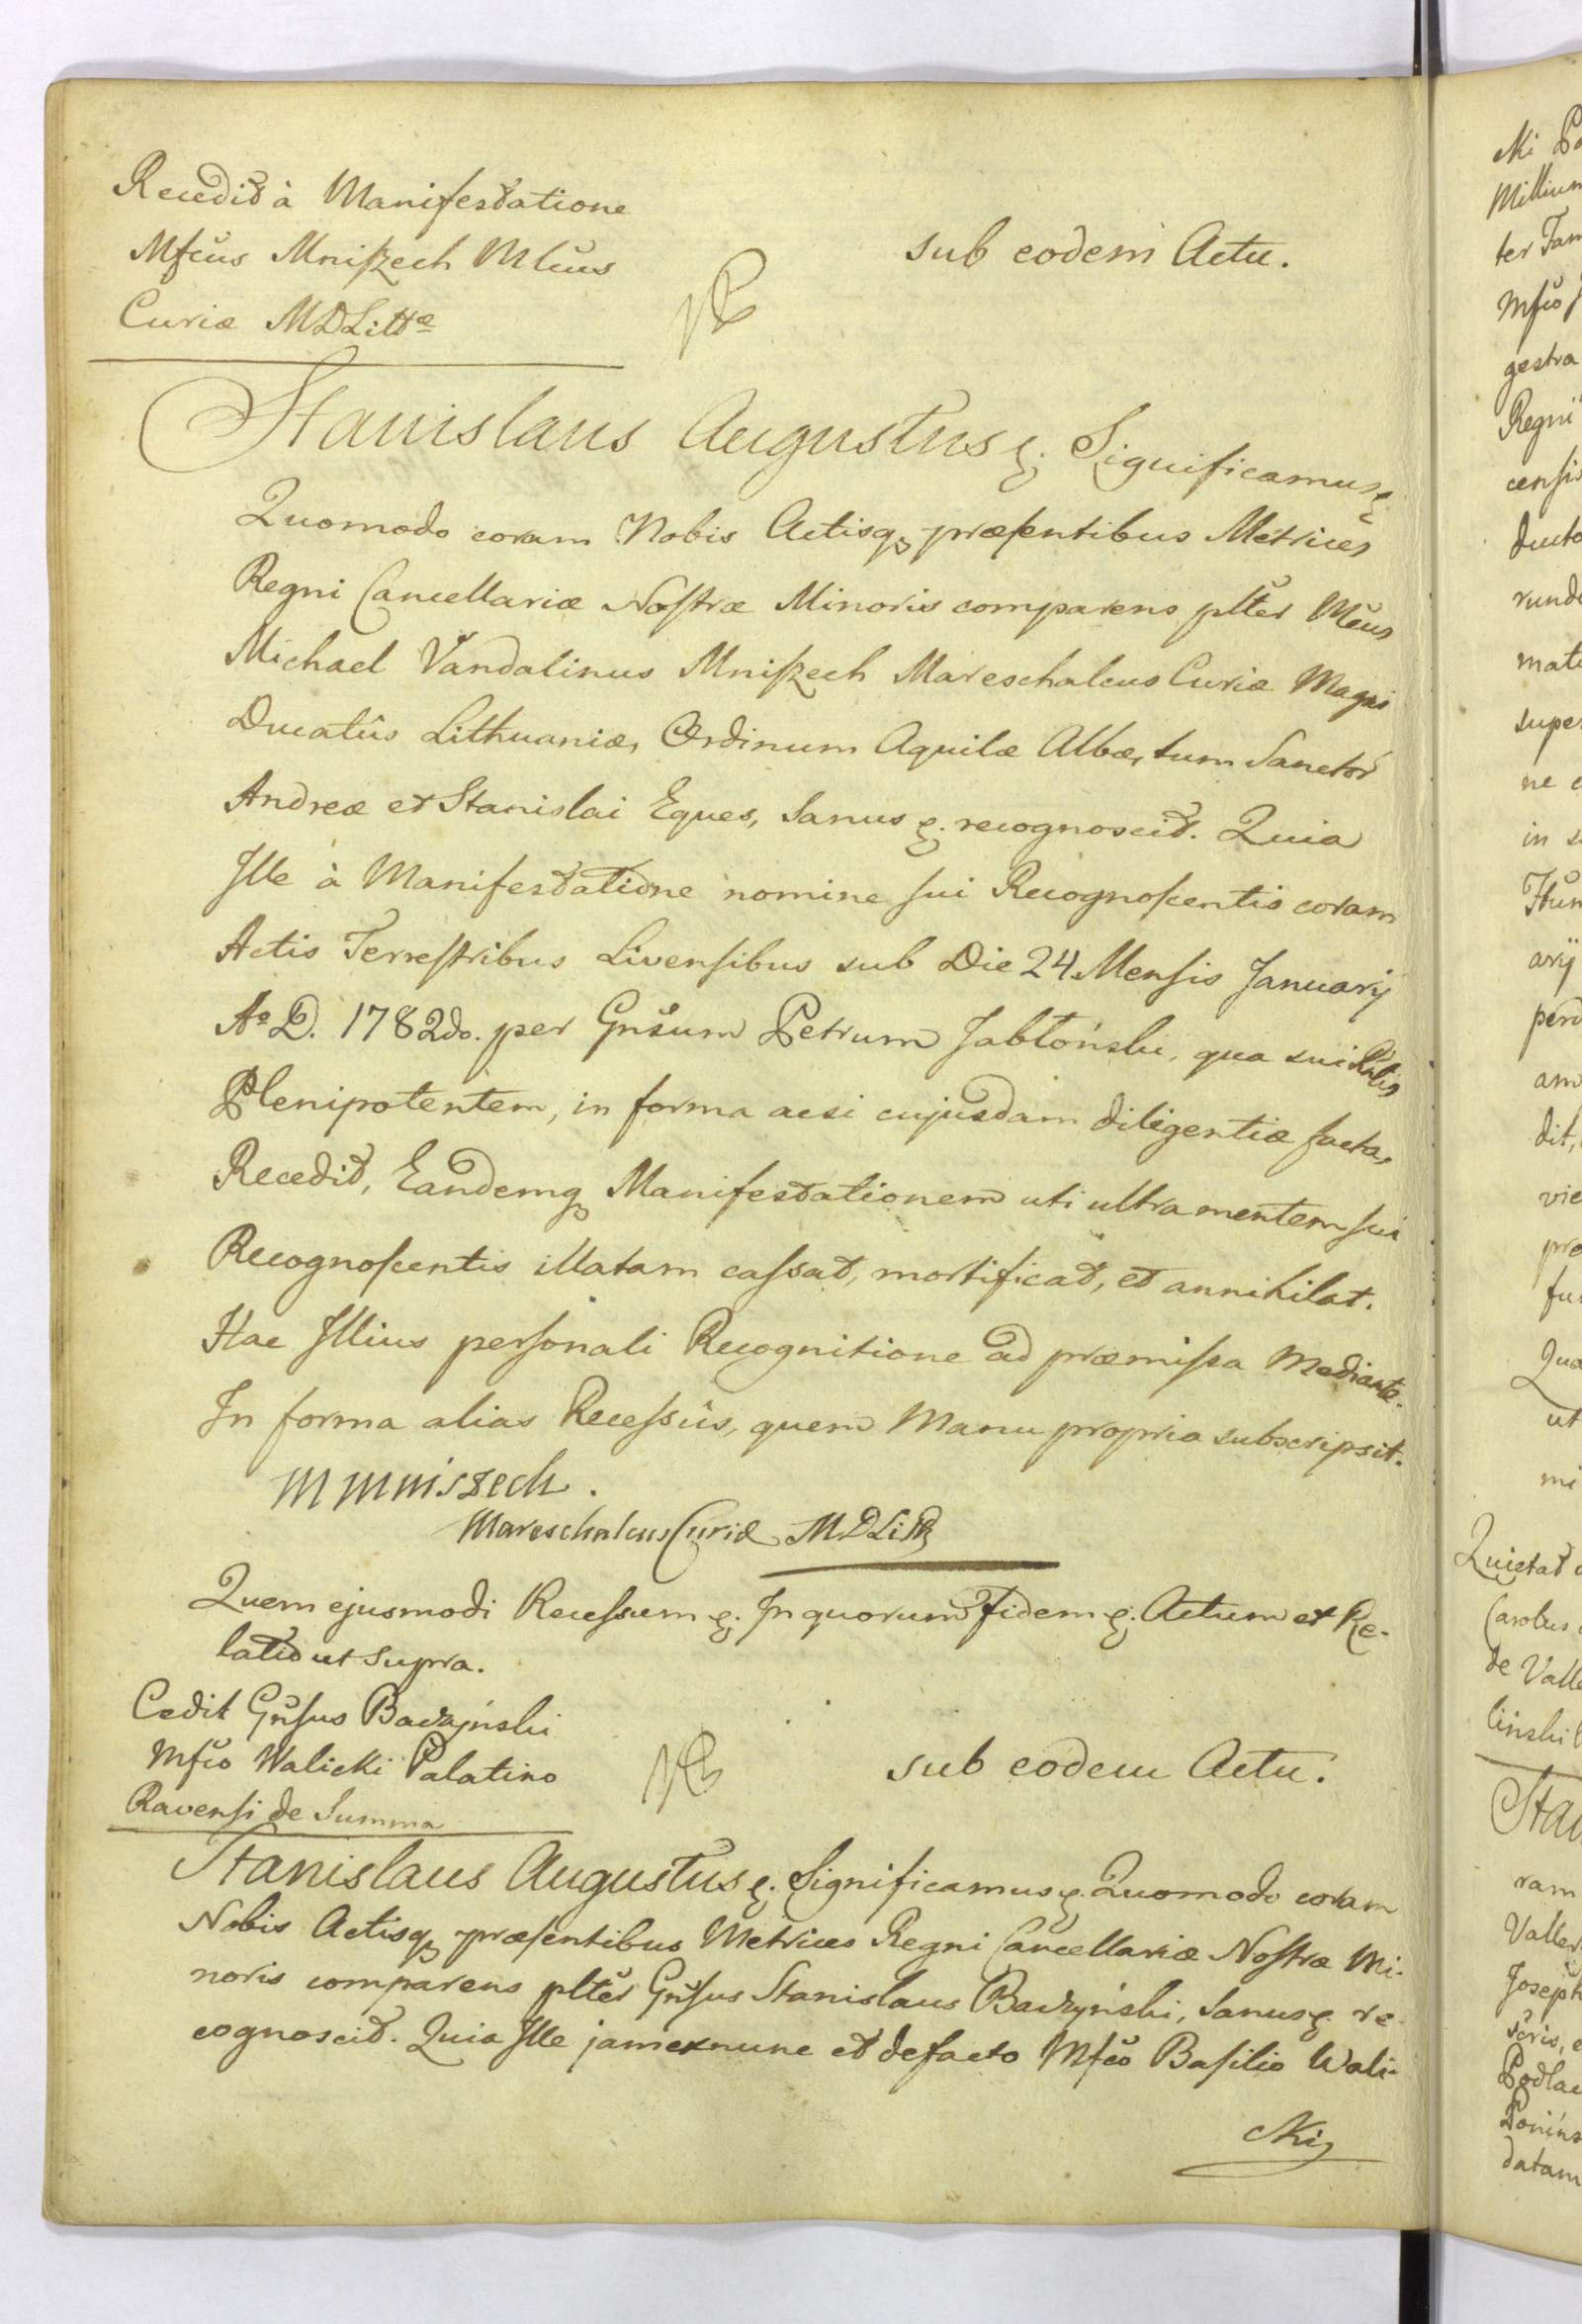 Recedit à Manifestatione
Mfcus Mniszech Mlcus
Curiæ MDLittæ
sub eodem Actu.
Stanislaus Augustus &. Significamus &
Quomodo coram Nobis Actisq; præsentibus Metrices
Regni Cancellariæ Nostræ Minoris comparens plter Mcus
Michael Vandalinus Mniszech Mareschalcus Curiæ Magni
Ducatûs Lithuaniæ, Ordinum Aquilæ Albæ, tum Sanctor
Andreæ et Stanislai Eques, Sanus &. recognoscit. Quia
Ille à Manifestatione nomine sui Recognoscentis coram
Actis Terrestribus Livensibus sub Die 24 Mensis Januarij
Ao D. 1782do. per Gnsum Petrum Jabłoński, qua sui
Plenipotentem, in forma acsi cujusdam diligentiæ facta,
Recedit, Eandemq; Manifestationem uti ultra mentem sui
Recognoscentis illatam cassat, mortificat, et annihilat.
Hac Illius personali Recognitione ad præmissa Mediante.
In forma alias Recessûs, quem Manu propria subscripsit.
M Mniszech.
Mareschalcus Curiæ MDLitt
Quem ejusmodi Recessum &. In quorum Fidem &. Actum et Re-
latio ut supra.
Cedit Gnsus Badzyński
Mfco Walicki Palatino
Ravensi de Summa
sub eodem Actu.
Stanislaus Augustus &. Significamus &. Quomodo coram
Nobis Actisq; præsentibus Metrices Regni Cancellariæ Nostræ Mi-
noris comparens plter Gnsus Stanislaus Badzyński, Sanus &. re-
cognoscit. Quia Ille jam ex nunc et de facto Mfco Basilio Wali-
cki